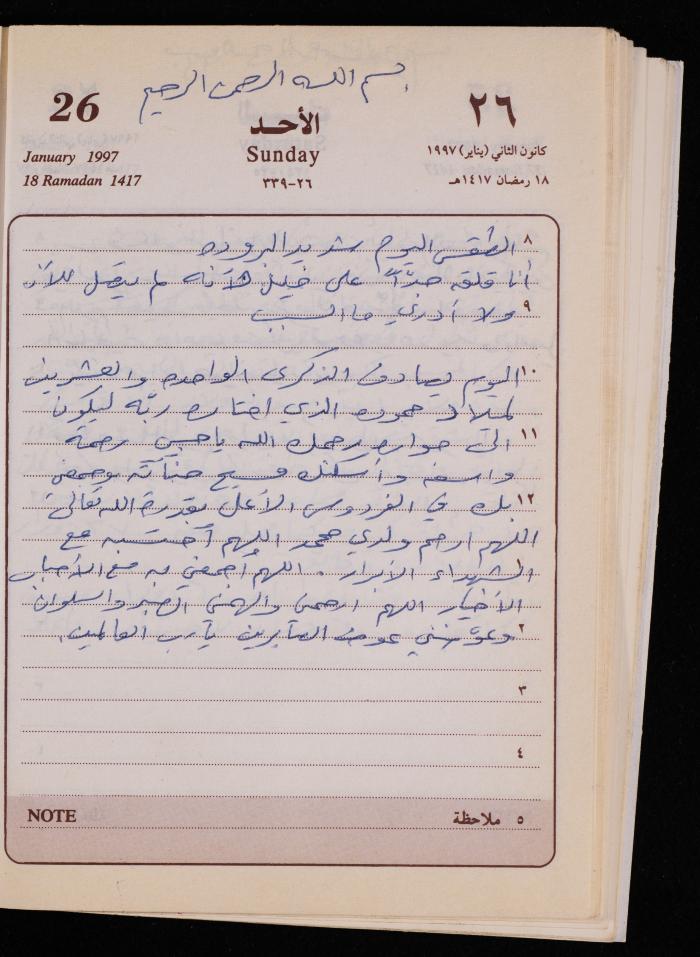 بسم الله الرحمن الرحيم
26
٢٦
الأحد
January 1997
Sunday
كانون الثاني (يناير) ١٩٩٧
18 Ramadan 1417
٣٣٩-٢٦
١٨ رمضان ١٤١٧هـ
٨ الطقس اليوم شديد البروده
أنا قلقه جدّاً على خليل لأنه لم يتصل للآن
٩ ولا أدري ما السبب
١٠ اليوم يصادف الذكرى الواحده والعشرين
لميلاد حموده الذي اختاره ربّه ليكون
١١ الى جواره رحمك الله ياحبيبي رحمة
واسعه وأسكنك فسيح جنّاته وجمعني
١٢ بك في الفردوس الأعلى بقدرة الله تعالى
اللهم ارحم ولدي محمد اللهم أحتسبه مع
١ الشهداء الأبرار . اللهم أجمعني به مع الأحباب
الأخيار اللهم ارحمني والهمني الصبر والسلوان
٢ وعوّضني عوض الصابرين يارب العالمين.
٣
٤
NOTE
٥ ملاحظة